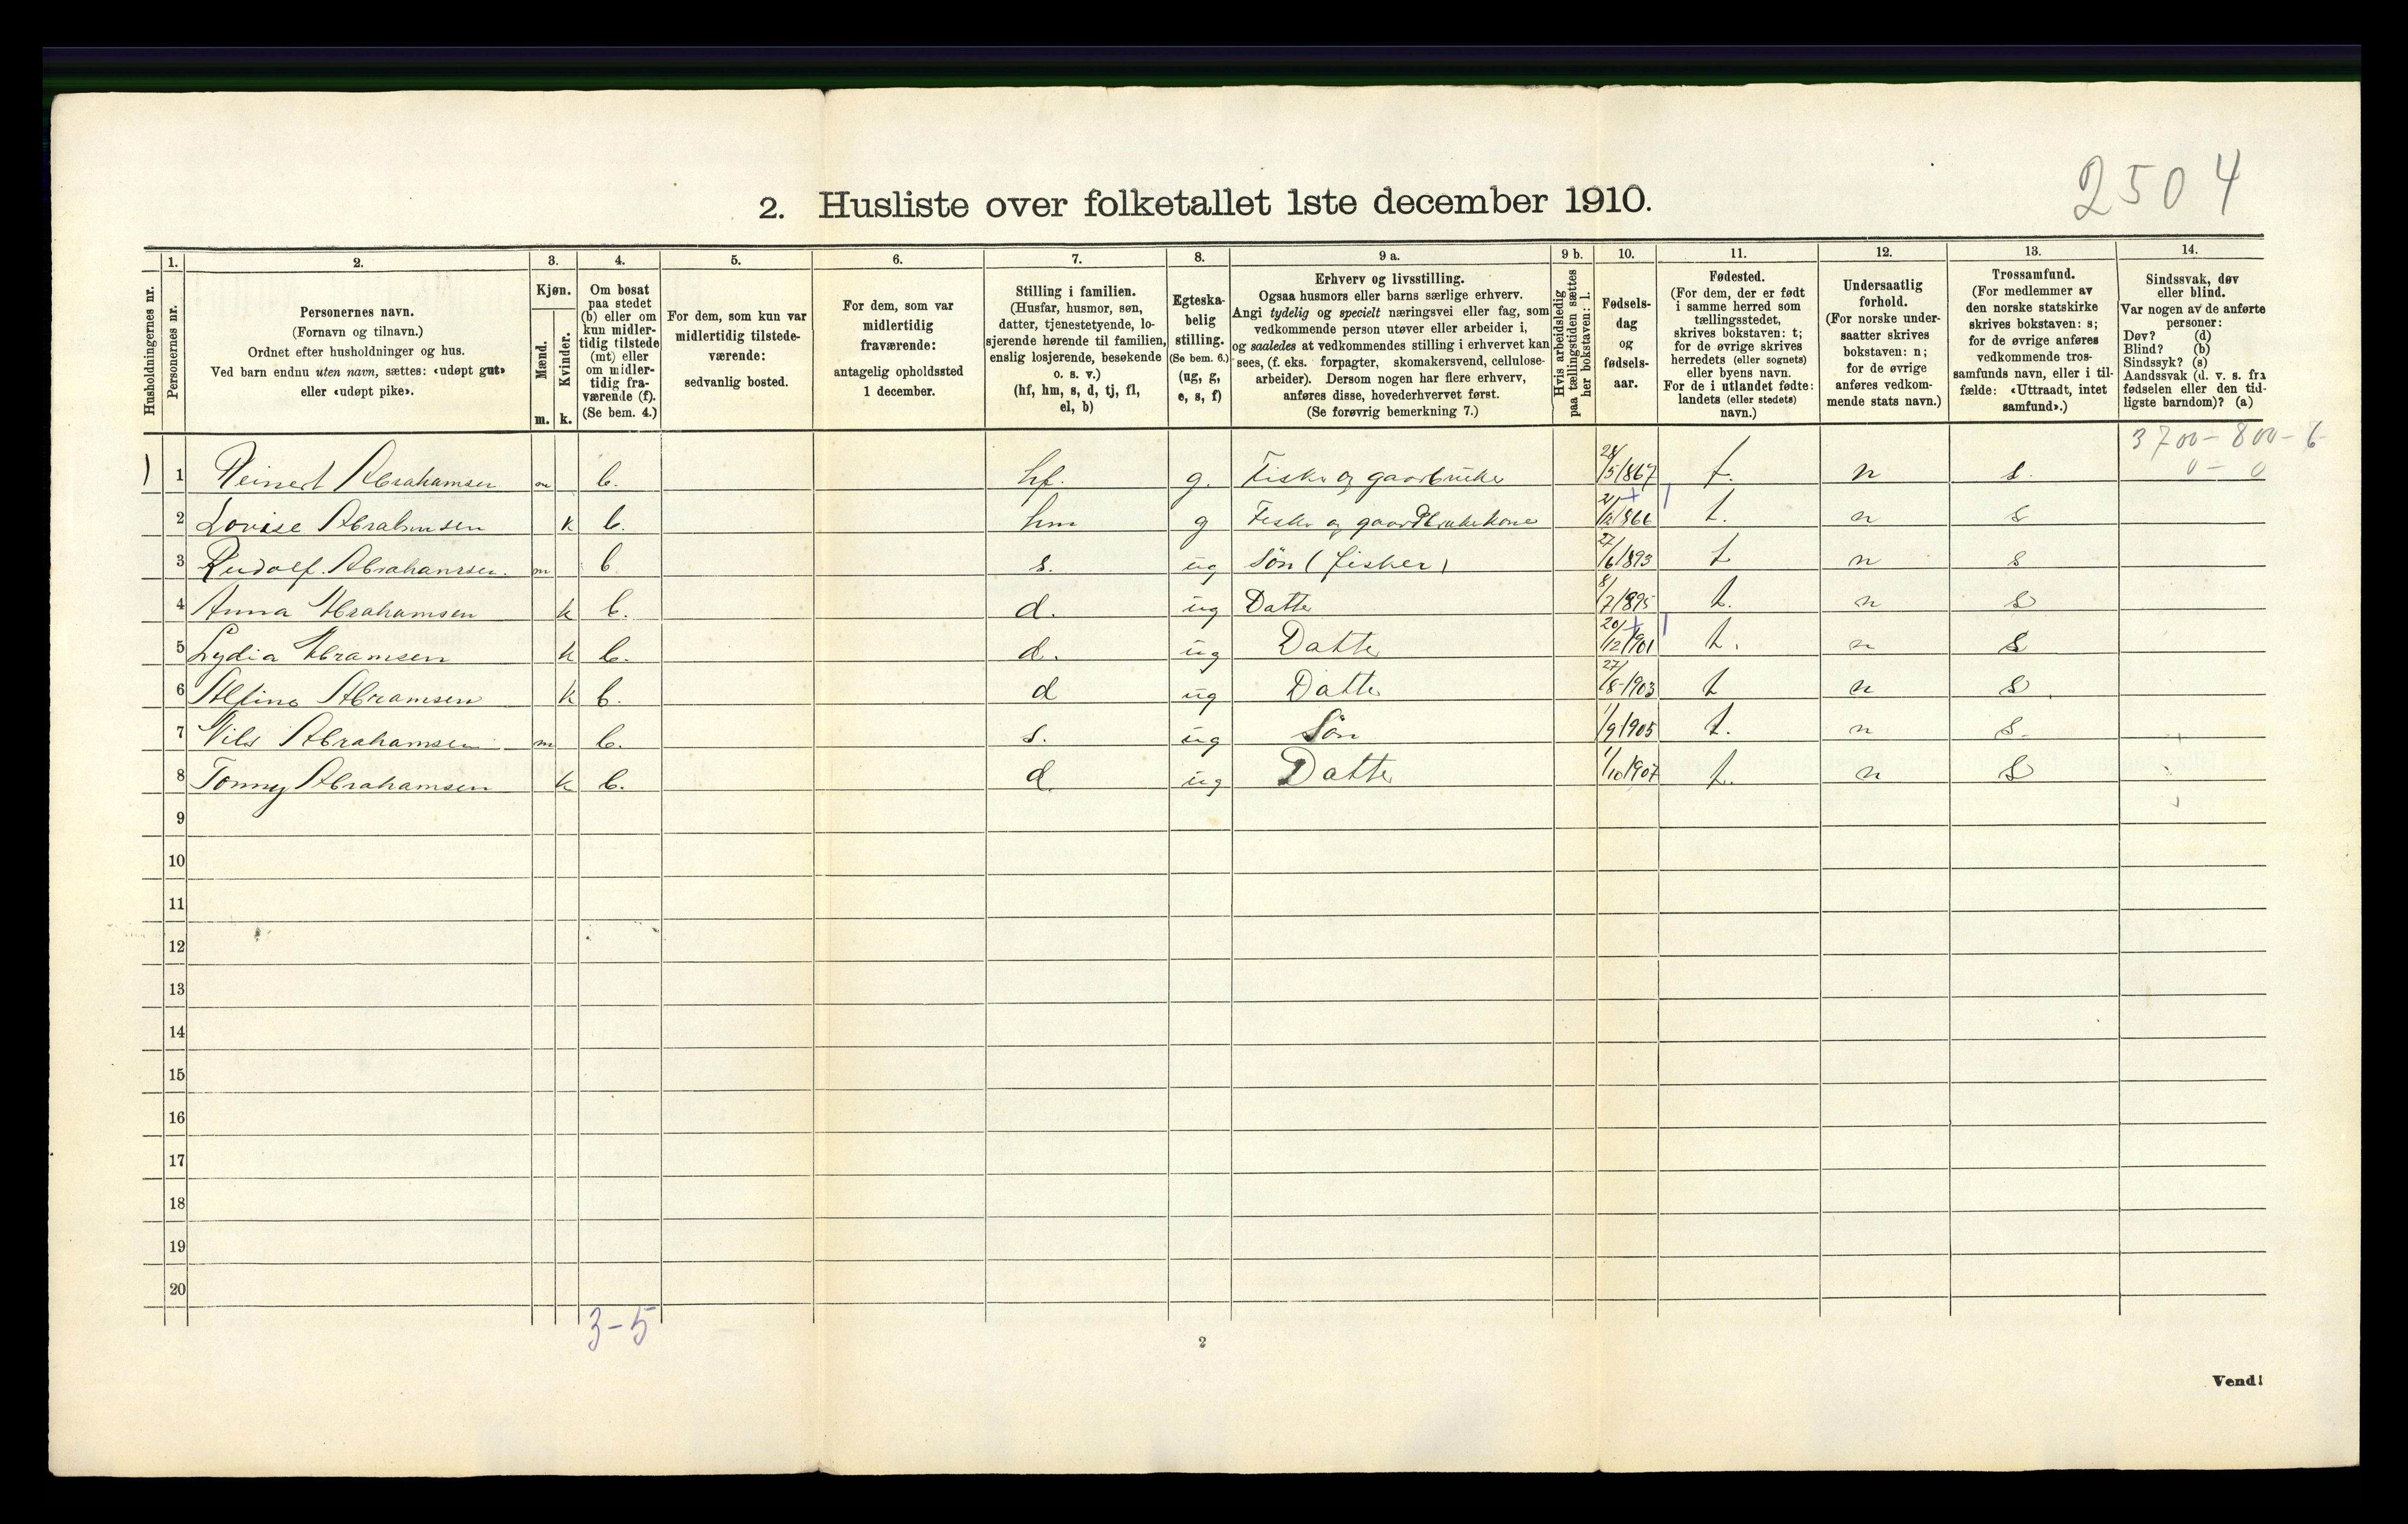 2504
2. Husliste over folketallet 1ste december 1910.
Husholdningernes nr.
1. Personernes nr.
2. Personernes navn.
(Fornavn og tilnavn.)
Ordnet efter husholdninger og hus.
Ved barn endnu uten navn, sættes: «udøpt gut»
eller «udøpt pike».
3. Kjøn.
Mænd. m.
Kvinder. k.
4. Om bosat
paa stedet
(b) eller om
kun midler-
tidig tilstede
(mt) eller
om midler-
tidig fra-
værende (f).
(Se bem. 4.)
5. For dem, som kun var
midlertidig tilstede-
værende:
sedvanlig bosted.
6. For dem, som var
midlertidig
fraværende:
antagelig opholdssted
1 december.
7. Stilling i familien.
(Husfar, husmor, søn,
datter, tjenestetyende, lo-
sjerende hørende til familien,
enslig losjerende, besøkende
o. s. v.)
(hf, hm, s, d, tj, fl,
el, b)
8. Egteska-
belig
stilling.
(Se bem. 6.)
(ug, g,
e, s, f)
9 a. Erhverv og livsstilling.
Ogsaa husmors eller barns særlige erhverv.
Angi tydelig og specielt næringsvei eller fag, som
vedkommende person utøver eller arbeider i,
og saaledes at vedkommendes stilling i erhvervet kan
sees, (f. eks. forpagter, skomakersvend, cellulose-
arbeider). Dersom nogen har flere erhverv,
anføres disse, hovederhvervet først.
(Se forøvrig bemerkning 7.)
9 b. Hvis arbeidsledig
paa tællingstiden sættes
her bokstaven: l.
10. Fødsels-
dag
og
fødsels-
aar.
11. Fødested.
(For dem, der er født
i samme herred som
tællingsstedet,
skrives bokstaven: t;
for de øvrige skrives
herredets (eller sognets)
eller byens navn.
For de i utlandet fødte:
landets (eller stedets)
navn.)
12. Undersaatlig
forhold.
(For norske under-
saatter skrives
bokstaven: n;
for de øvrige
anføres vedkom-
mende stats navn.)
13. Trossamfund.
(For medlemmer av
den norske statskirke
skrives bokstaven: s;
for de øvrige anføres
vedkommende tros-
samfunds navn, eller i til-
fælde: «Uttraadt, intet
samfund».)
14. Sindssvak, døv
eller blind.
Var nogen av de anførte
personer:
Døv? (d)
Blind? (b)
Sindssyk? (s)
Aandssvak (d. v. s. fra
fødselen eller den tid-
ligste barndom)? (a)
3700-800-6
0-0
1 Reinert Abrahamsen m b. hf. g. Fisker og gaardbruker 5/1867 t. n s.
2 Lovise k b. hm g Fisker og gaardbrukekone 21/12 1866 t. n s
3 Rudolf Abrahamsen. m b s. ug Søn (fisker) 27/6 1893 t n s
4 Anna Abrahamsen k b. d. ug Datter 8/7 1895 t. n s
5 Lydia Abramsen k b. d. ug Datter 20/12 1901 t. n s
6 Alfine Abramsen k b. d ug Datter 27/8-1903 t n s
7 Nils Abrahamsen m b. s. ug Søn 1/9 1905 t. n s.
8 Tonny Abrahamsen k b. d ug Datter 1/10 1907 t. n s
9
10
11
12
13
14
15
16
17
18
19
20
3-5
2
Vend!